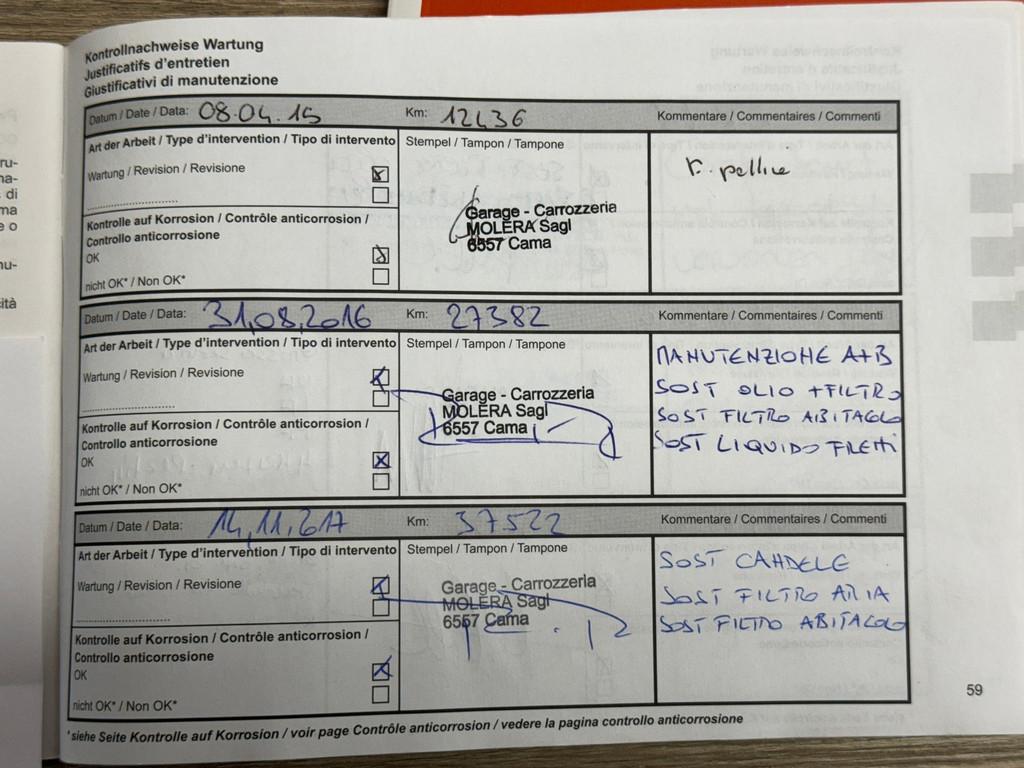 Kontrollnachweise Wartung
Justificatifs d'entretien
Giustificativi di manutenzione
Datum / Date / Data: 08.04.15 Km: 12436 Kommentare / Commentaires / Commenti
Art der Arbeit / Type d'intervention / Tipo di intervento Stempel / Tampon / Tampone
Wartung / Revision / Revisione
Garage - Carrozzeria
MOLERA Sagl
6557 Cama
Kontrolle auf Korrosion / Contrôle anticorrosion /
Controllo anticorrosione
OK
nicht OK* / Non OK*
Datum / Date / Data: 31,08,2016 Km: 27382 Kommentare / Commentaires / Commenti
Art der Arbeit / Type d'intervention / Tipo di intervento Stempel / Tampon / Tampone
Wartung / Revision / Revisione
Garage - Carrozzeria
MOLERA Sagl
6557 Cama
Kontrolle auf Korrosion / Contrôle anticorrosion /
Controllo anticorrosione
OK
nicht OK* / Non OK*
MANUTENZIONE A+B
SOST OLIO +FILTRO
SOST FILTRO ABITACOLO
SOST LIQUIDO FRENI
Datum / Date / Data: 14,11,2017 Km: 37522 Kommentare / Commentaires / Commenti
Art der Arbeit / Type d'intervention / Tipo di intervento Stempel / Tampon / Tampone
Wartung / Revision / Revisione
Garage - Carrozzeria
MOLERA Sagl
6557 Cama
Kontrolle auf Korrosion / Contrôle anticorrosion /
Controllo anticorrosione
OK
nicht OK* / Non OK*
SOST CANDELE
SOST FILTRO ARIA
SOST FILTRO ABITACOLO
59
*siehe Seite Kontrolle auf Korrosion / voir page Contrôle anticorrosion / vedere la pagina controllo anticorrosione